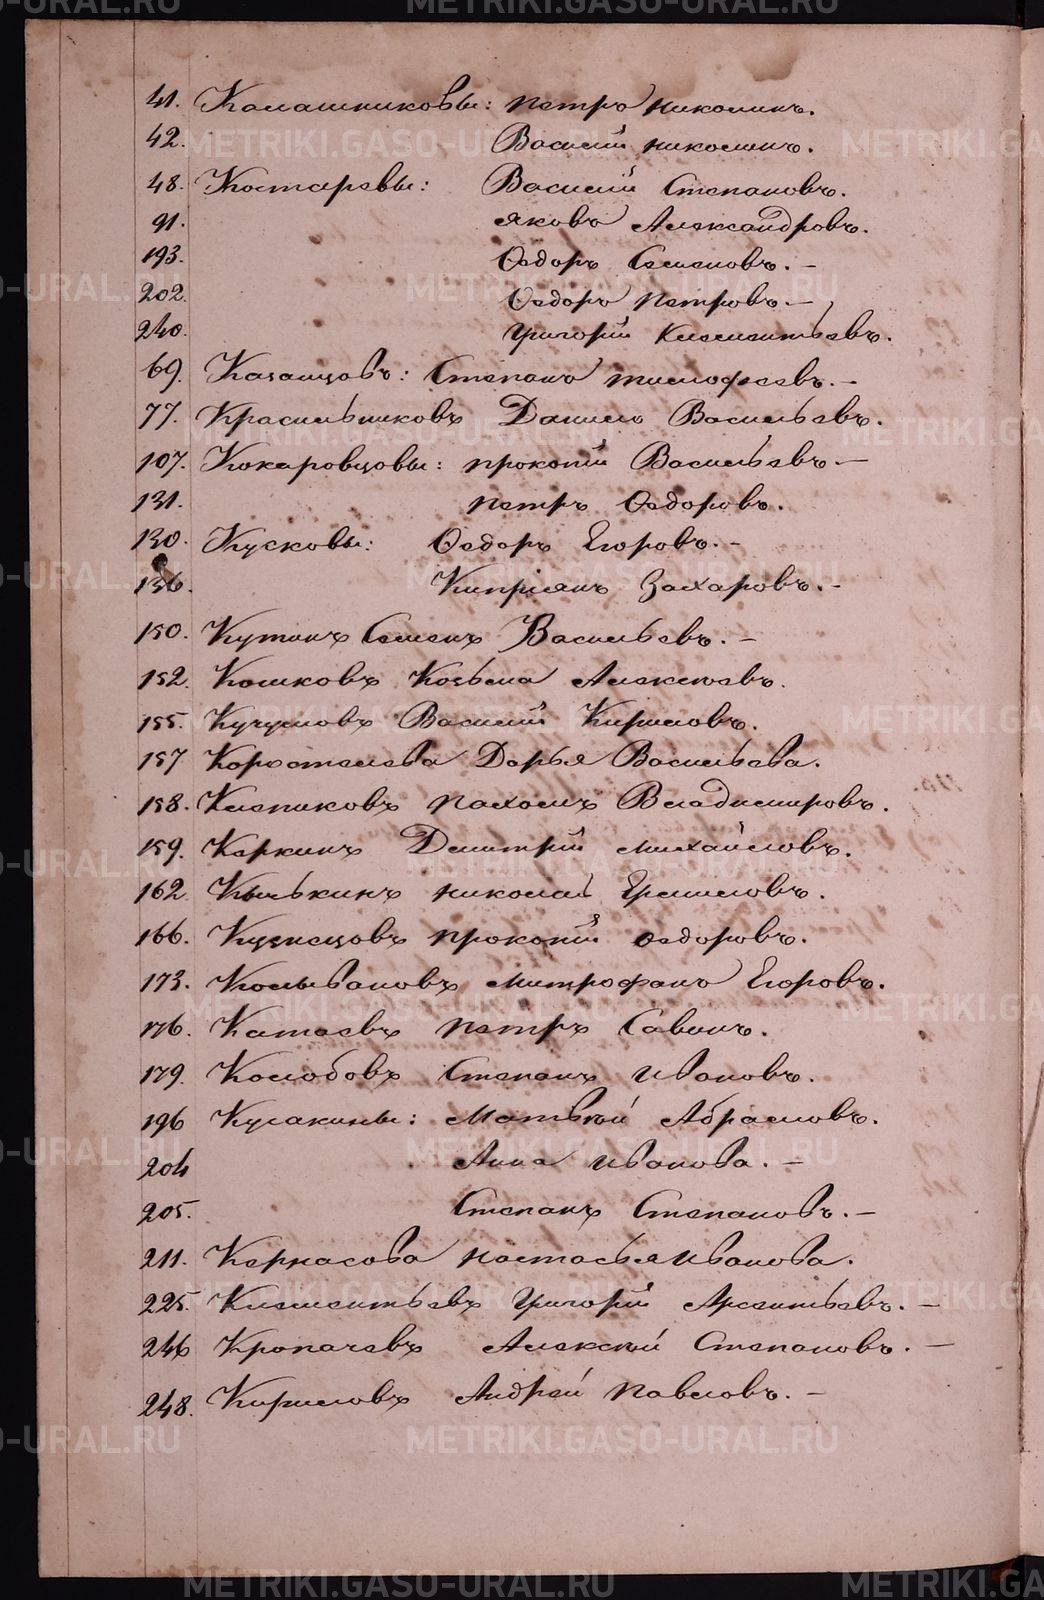 41. Калашниковы: Петръ Николинъ.
42. Василiй Николинъ.
48. Костаревы: Василiй Степановъ.
91. Яковъ Александровъ.
193. Ѳедоръ Семеновъ. –
202. Ѳедоръ Петровъ. –
240. Григорiй Клементьевъ.
69. Казанцовъ: Степанъ Тимофеевъ. –
77. Красильниковъ Данило Васильевъ.
107. Кокаровцовы: Прокопiй Васильевъ –
131. Петръ Ѳедоровъ.
130. Кусковы: Ѳедоръ Егоровъ. –
136. Кипрiянъ Захаровъ. –
150. Кутинъ Семенъ Васильевъ. –
152. Кошковъ Козьма Алексѣевъ.
155. Кучумовъ Василiй Кириловъ.
157 Коростелева Дарья Васильева.
158. Клепиковъ Пахомъ Владимировъ.
159. Керкинъ Димитрiй Михайловъ.
162 Кылькинъ Николай Ермиловъ.
166. Кузнецовъ Прокопiй Ѳедоровъ.
173. Колывановъ Митрофанъ Егоровъ.
176. Катаевъ Петръ Савинъ.
179. Колобовъ Степанъ Ивановъ.
196 Кулакины: Матвѣй Абрамовъ.
204 Анна Иванова. –
205. Степанъ Степановъ. –
211. Каркасова Настасья Иванова.
225. Клементьевъ Григорiй Арсентьевъ. –
246 Кропачевъ Алексѣй Степановъ. –
248. Кириловъ Андрей Павловъ. –
METRIKI.GASO-URAL.RU